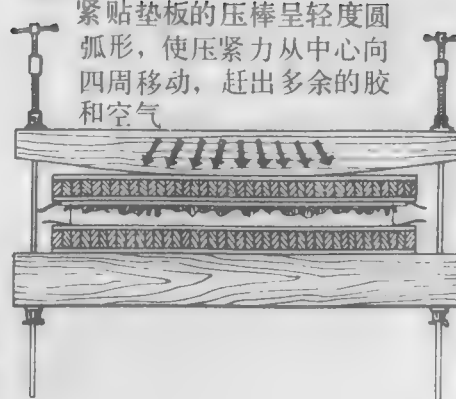 紧贴垫板的压棒呈轻度圆
弧形，使压紧力从中心向
四周移动，赶出多余的胶
和空气